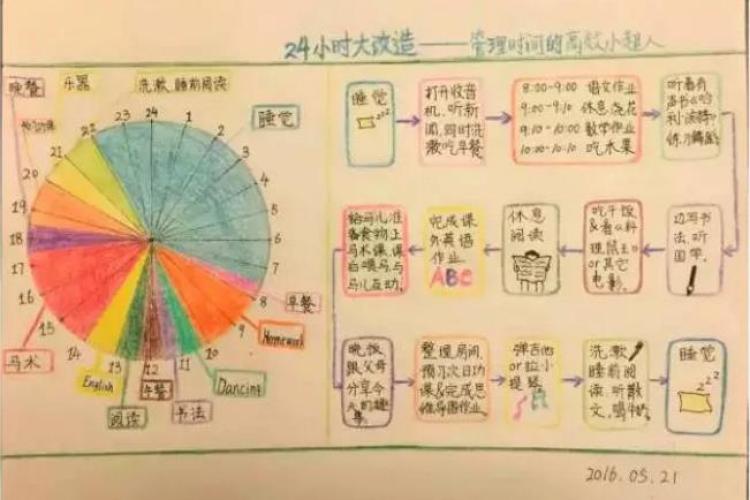 24小时大改造——管理时间的高效小超人
晚餐
乐器
洗漱,睡前阅读
睡觉
24
1
2
3
4
5
6
7
8
9
10
11
12
13
14
15
16
17
18
19
20
21
22
23
早餐
Homework
Dancing
书法
午餐
阅读
English
马术
睡觉
zzz
打开收音
机,听新
闻,同时洗
漱吃早餐
8:00-9:00 语文作业
9:00-9:10 休息,浇花
9:10-10:00 数学作业
10:00-10:10 吃水果
听着有
声书《哈
利·波特》
练习
边写书
法,听
国学。
吃午饭
&看《料
理鼠王》
or其它
电影。
休息
阅读
完成课
外英语
作业
ABC
给马儿准
备食物,上
马术课,课
后喂马与
马儿互动。
晚饭
跟父母
分享今
天的趣
事。
整理房间,
预习次日功
课&完成思
维导图作业。
弹吉他
or拉小
提琴
洗漱,
睡前阅
读,听散
文,喝牛奶
睡觉
zzz
2016.05.21